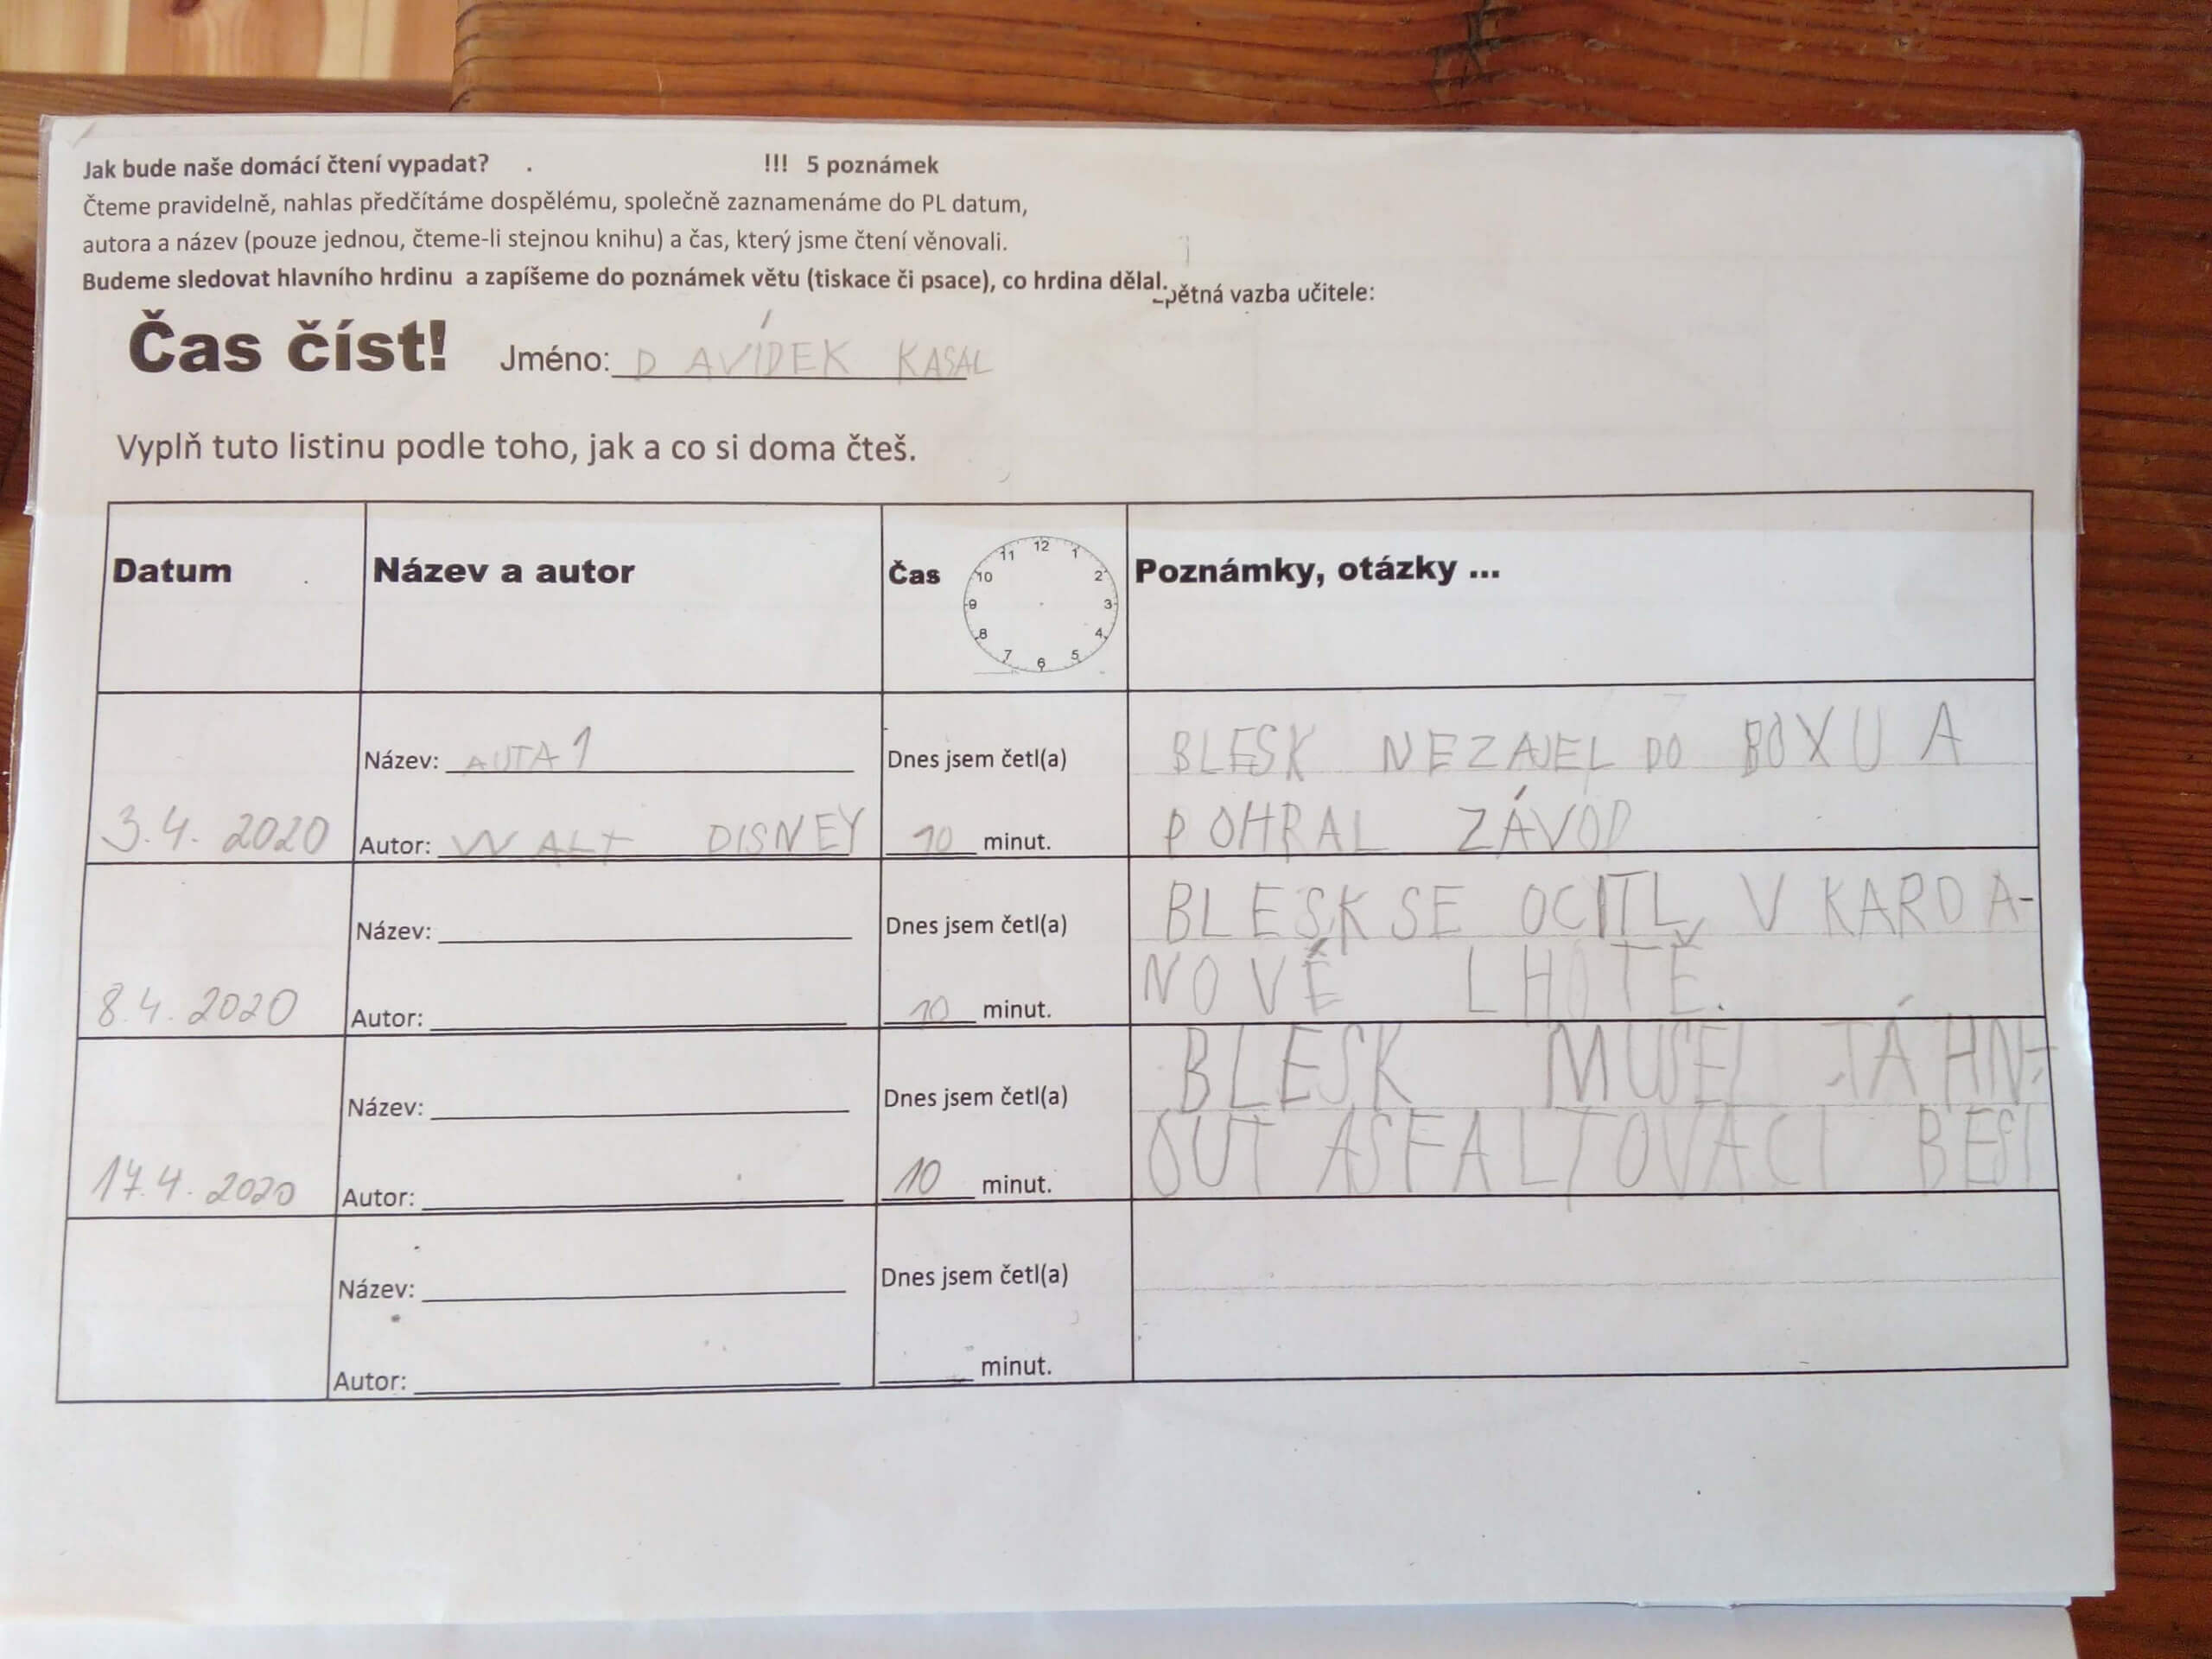 Jak bude naše domácí čtení vypadat? . !!! 5 poznámek
Čteme pravidelně, nahlas předčítáme dospělému, společně zaznamenáme do PL datum,
autora a název (pouze jednou, čteme-li stejnou knihu) a čas, který jsme čtení věnovali.
Budeme sledovat hlavního hrdinu a zapíšeme do poznámek větu (tiskace či psace), co hrdina dělal.
pětná vazba učitele:
Čas číst! Jméno: DAVÍDEK KASAL
Vyplň tuto listinu podle toho, jak a co si doma čteš.
Datum Název a autor Čas Poznámky, otázky ...
12 1 2 3 4 5 6 7 8 9 10 11
Název: AUTA 1 Dnes jsem četl(a) BLESK NEZAJEL DO BOXU A
3.4. 2020 Autor: WALT DISNEY 10 minut. POHRAL ZÁVOD
Název: Dnes jsem četl(a) BLESK SE OCITL V KARDA-
8.4. 2020 Autor: 10 minut. NOVĚ LHOTĚ.
Název: Dnes jsem četl(a) BLESK MUSEL TÁHN-
17.4. 2020 Autor: 10 minut. OUT ASFALTOVACI BESI
Název: Dnes jsem četl(a)
Autor: minut.